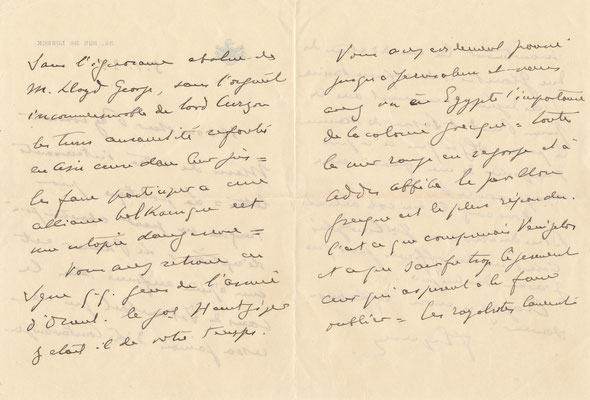 Sans l'ignorance absolue de
M. Lloyd George, sans l'orgueil
incommensurable de lord Curzon
les turcs auraient été refoulés
en Asie
les faire participer à une
alliance balkanique est
une utopie dangereuse =
Vous avez retrouvé en
gens de l'armée
d'Orient. le gal Huntziger
y était il de votre temps.
Vous avez poussé
jusqu'à Jérusalem et vous
avez vu en Egypte l'importance
de la colonie grecque = toute
la mer rouge en regorge et à
Addis Abbéba le pavillon
grecque est le plus répandu.
C'est ce que comprenait Venizelos
et ce que
ceux qui aspirent à le faire
oublier = les royalistes